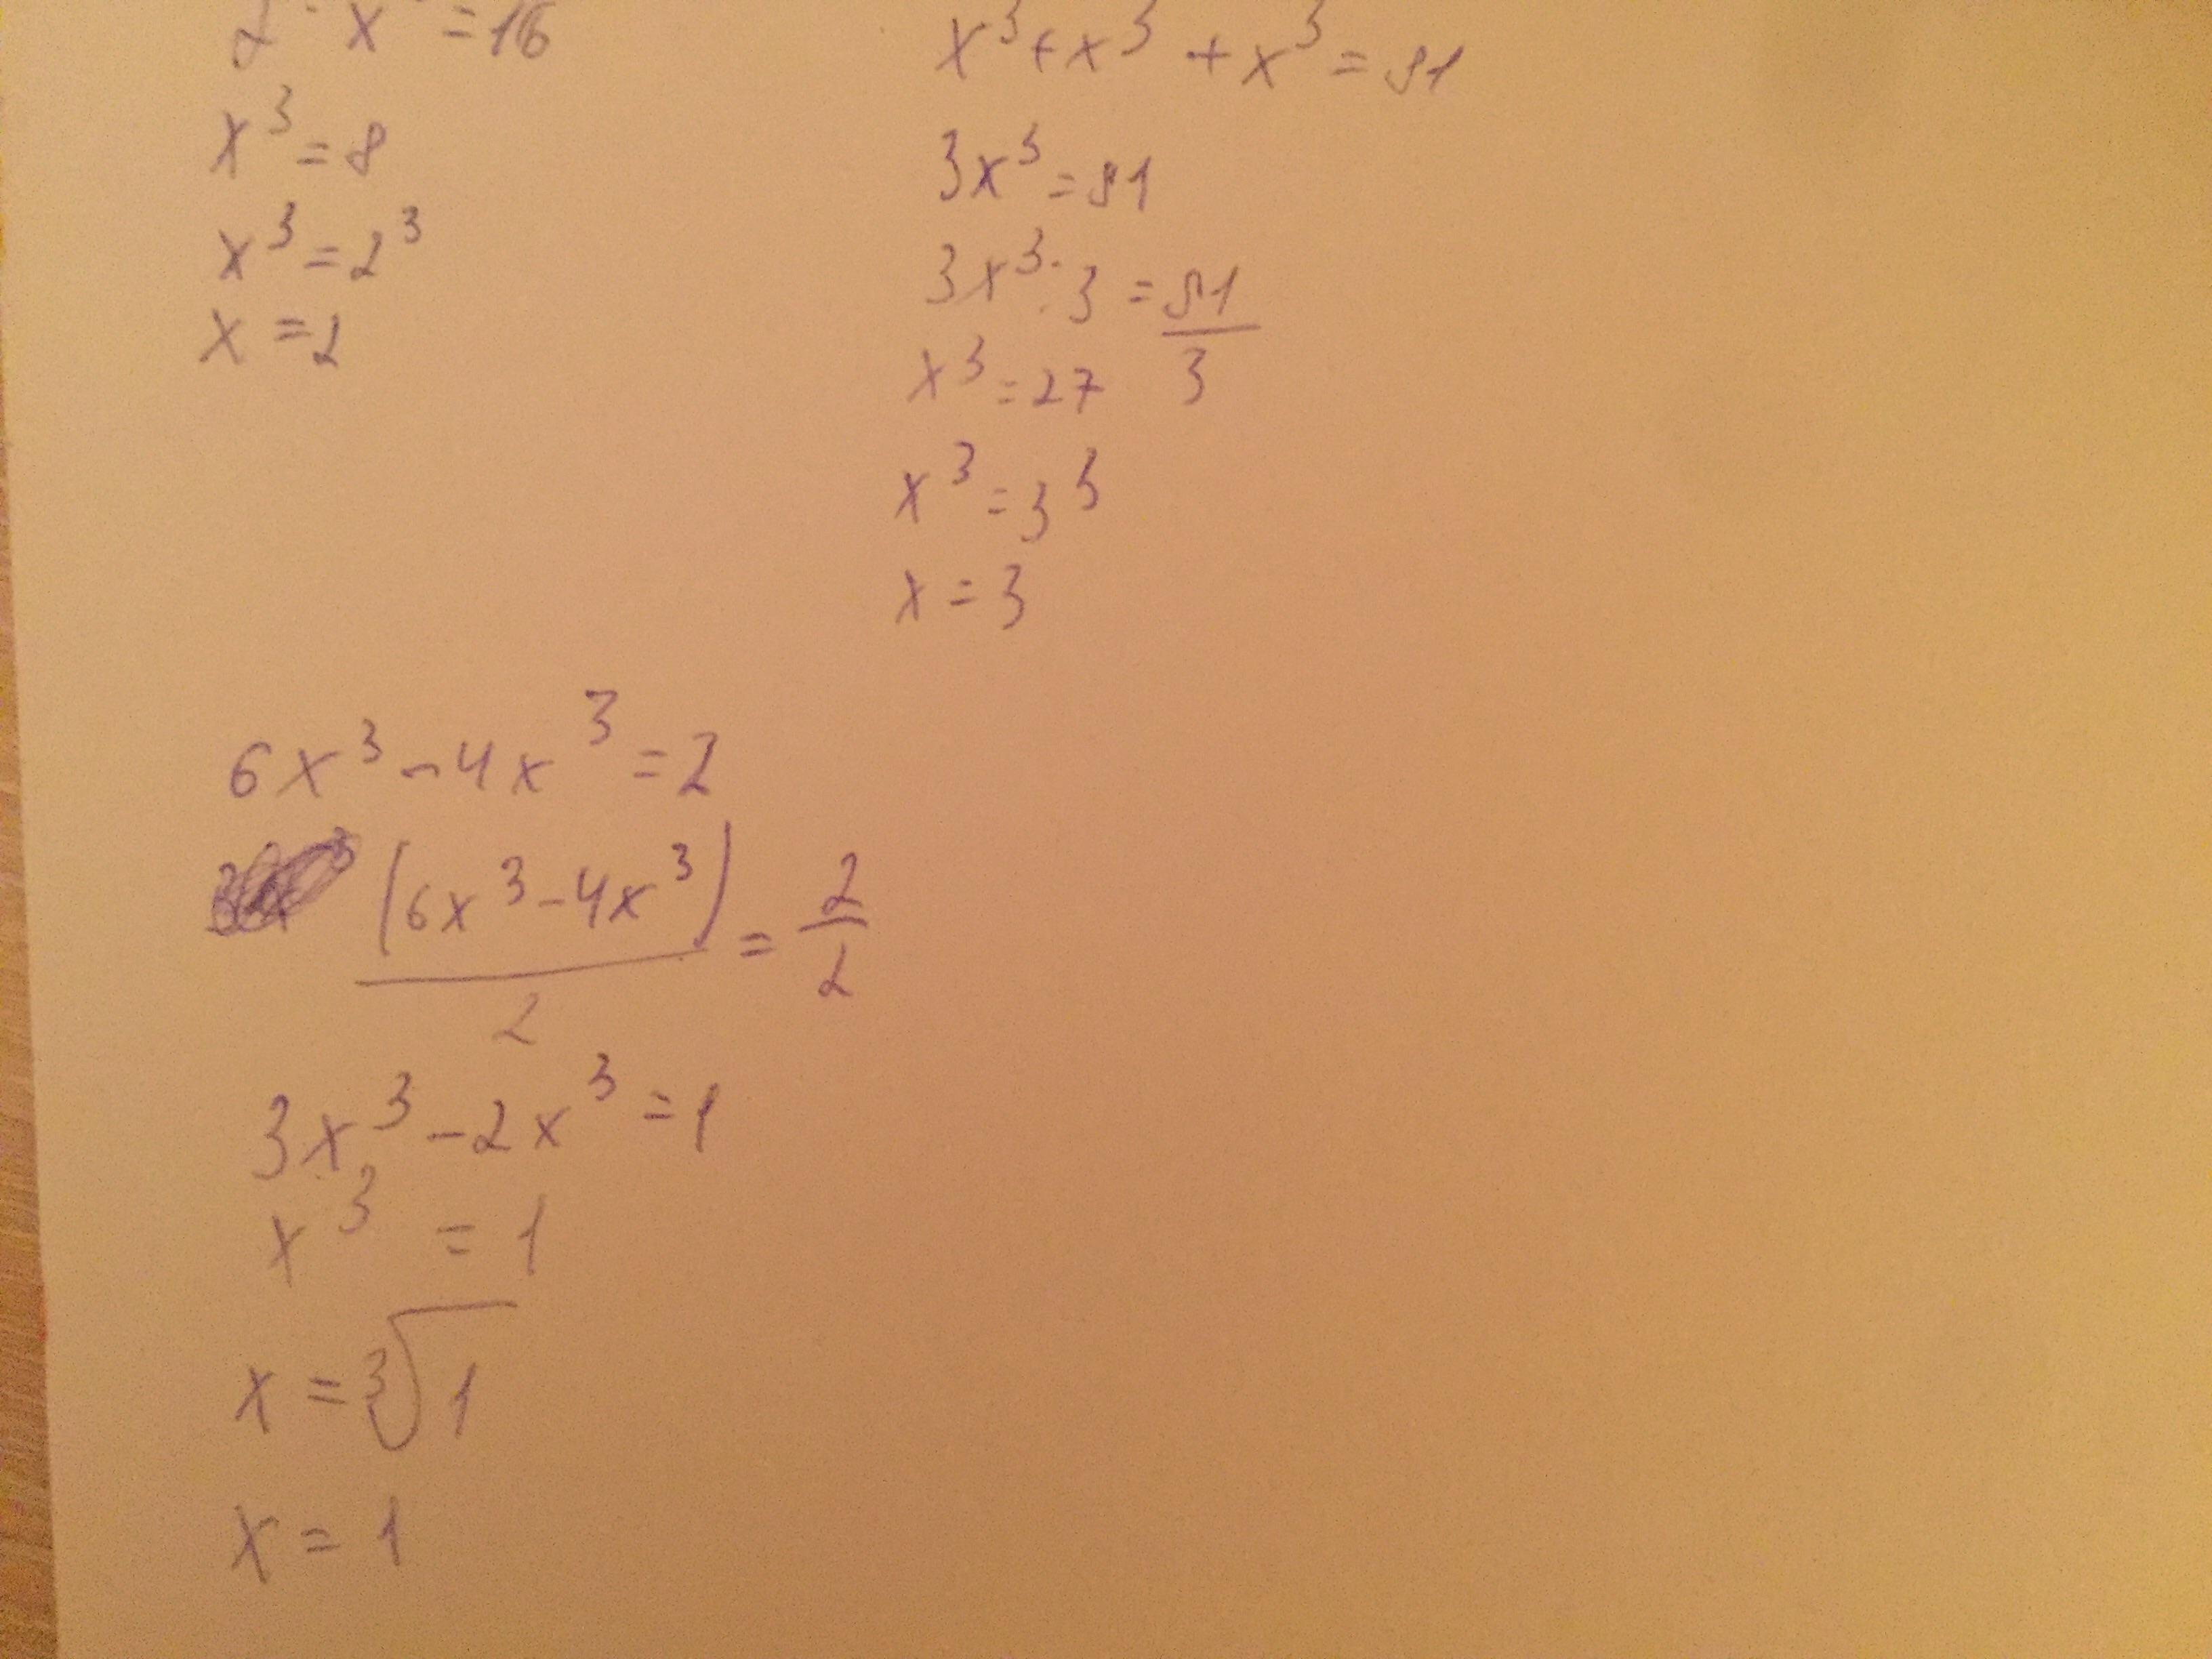 2 · x³ = 16
x³ = 8
x³ = 2³
x = 2
x³ + x³ + x³ = 81
3x³ = 81
3x³ : 3 = 81/3
x³ = 27
x³ = 3³
x = 3
6x³ - 4x³ = 2
(6x³ - 4x³)/2 = 2/2
3x³ - 2x³ = 1
x³ = 1
x = ³√1
x = 1